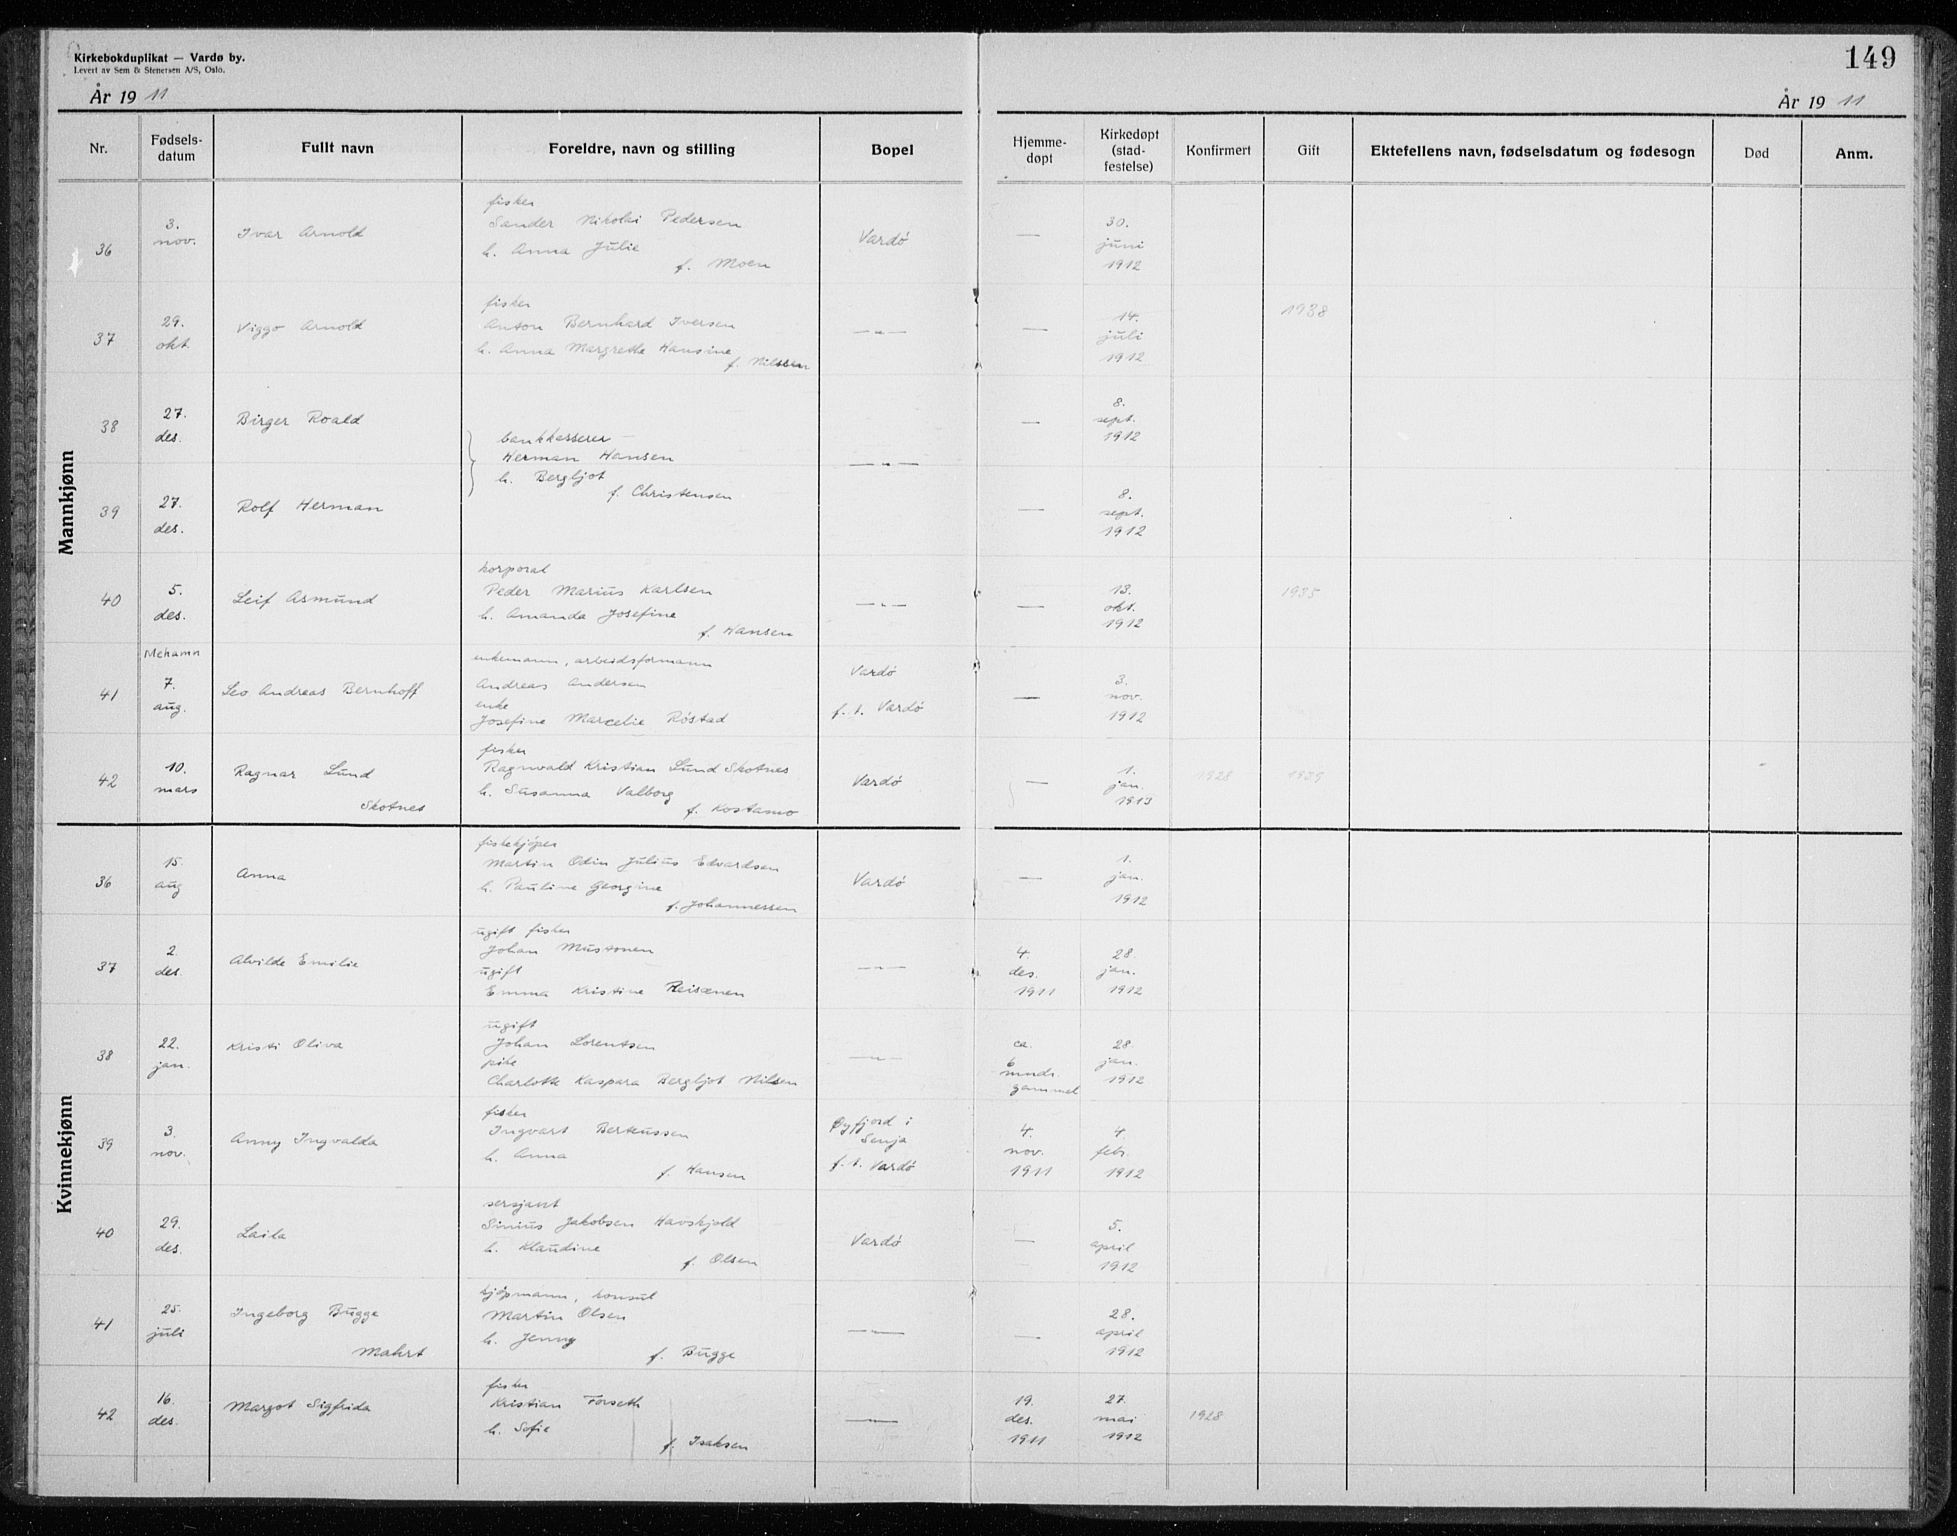 Kirkebokduplikat — Vardø by.
Levert av Sem & Stenersen A/S, Oslo.
149
År 19 11
År 19 11
Nr.
Fødsels-
datum
Fullt navn
Foreldre, navn og stilling
Bopel
Hjemme-
døpt
Kirkedøpt
(stad-
festelse)
Konfirmert
Gift
Ektefellens navn, fødselsdatum og fødesogn
Død
Anm.
Mannkjønn
36
3.
nov.
Ivar Arnold
fisker
Sander Nikolai Pedersen
h. Anna Julie
f. Moen
Vardö
—
30.
juni
1912
37
29.
okt.
Viggo Arnold
fisker
Anton Bernhard Iversen
h. Anna Margrethe Hansine
f. Nilssen
—"—
—
14.
juli
1912
1938
38
27.
des.
Birger Roald
bankkasserer
Herman Hansen
h. Bergljot
f. Christensen
—"—
—
8.
sept.
1912
39
27.
des.
Rolf Herman
—
8.
sept.
1912
40
5.
des.
Leif Asmund
korporal
Peder Marius Karlsen
h. Amanda Josefine
f. Hansen
—"—
—
13.
okt.
1912
1935
41
Mehamn
7.
aug.
Leo Andreas Bernhoff
enkemann, arbeidsformann
Andreas Andersen
enke
Josefine Marcelie Röstad
Vardö
f. t. Vardö
—
3.
nov.
1912
42
10.
mars
Ragnar Lund
Skotnes
fisker
Ragnvald Kristian Lund Skotnes
h. Susanna Valborg
f. Kostamo
Vardö
—
1.
jan.
1913
1928
1939
Kvinnekjønn
36
15
aug
Anna
fiskekjøper
Martin Odin Julius Edvardsen
h. Pauline Georgine
f. Johannessen
Vardö
—
1.
jan.
1912
37
2.
des.
Alvilde Emilie
ugift fisker
Johan Mustonen
ugift
Emma Kristine Reisænen
—"—
4.
des.
1911
28.
jan.
1912
38
22.
jan.
Kristi Oliva
ugift
Johan Lorentsen
pike
Charlotte Kaspara Bergljot Nilsen
—"—
ca.
6
mndr.
gammel
28.
jan.
1912
39
3.
nov.
Anny Ingvalda
fisker
Ingvart Berteussen
h. Anna
f. Hansen
Øyfjord i
Senja
f. t. Vardö
4.
nov.
1911
4.
febr.
1912
40
29.
des.
Laila
sersjant
Sinius Jakobsen Havskjold
h. Klaudine
f. Olsen
Vardö
—
5.
april
1912
41
25.
juli
Ingeborg Bugge
Mahrt
kjøpmann, konsul
Martin Olsen
h. Jenny
f. Bugge
—"—
—
28.
april
1912
42
16.
des.
Margot Sigfrida
fisker
Kristian Forseth
h. Sofie
f. Isaksen
—"—
19.
des.
1911
27.
mai
1912
1928